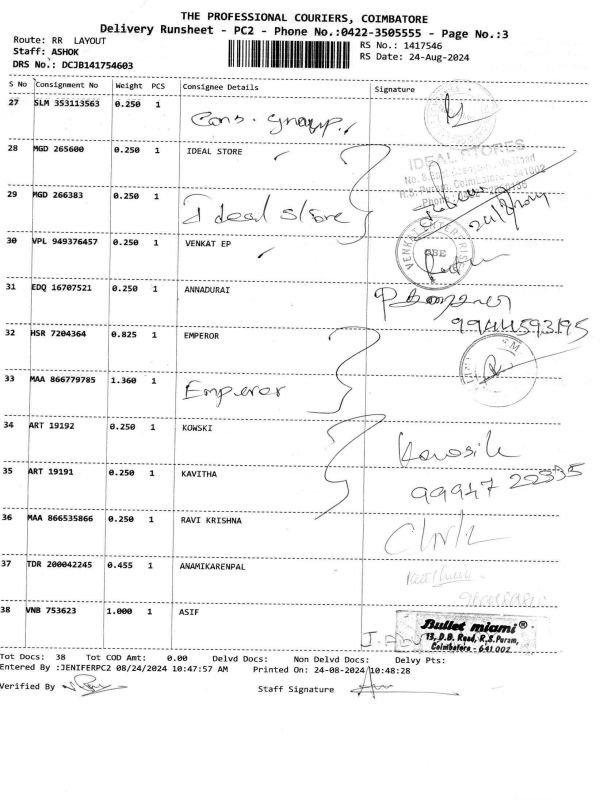 THE PROFESSIONAL COURIERS, COIMBATORE
Delivery Runsheet - PC2 - Phone No.:0422-3505555 - Page No.:3
Route: RR LAYOUT
RS No.: 1417546
Staff: ASHOK
RS Date: 24-Aug-2024
DRS No.: DCJB141754603
S No Consignment No Weight PCS Consignee Details Signature
27 SLM 353113563 0.250 1
Cons. group
28 MGD 265600 0.250 1 IDEAL STORE
IDEAL STORES
29 MGD 266383 0.250 1
Ideal store
30 VPL 949376457 0.250 1 VENKAT EP
31 EDQ 16707521 0.250 1 ANNADURAI
9944593195
32 HSR 7204364 0.825 1 EMPEROR
33 MAA 866779785 1.360 1
Emperor
34 ART 19192 0.250 1 KOWSKI
35 ART 19191 0.250 1 KAVITHA
99947
36 MAA 866535866 0.250 1 RAVI KRISHNA
37 TDR 200042245 0.455 1 ANAMIKARENPAL
38 VNB 753623 1.000 1 ASIF
Bullet miami®
13, D.B. Road, R.S.Puram,
Coimbatore - 641 002
Tot Docs: 38 Tot COD Amt: 0.00 Delvd Docs: Non Delvd Docs: Delvy Pts:
Entered By :JENIFERPC2 08/24/2024 10:47:57 AM Printed On: 24-08-2024/10:48:28
Verified By
Staff Signature